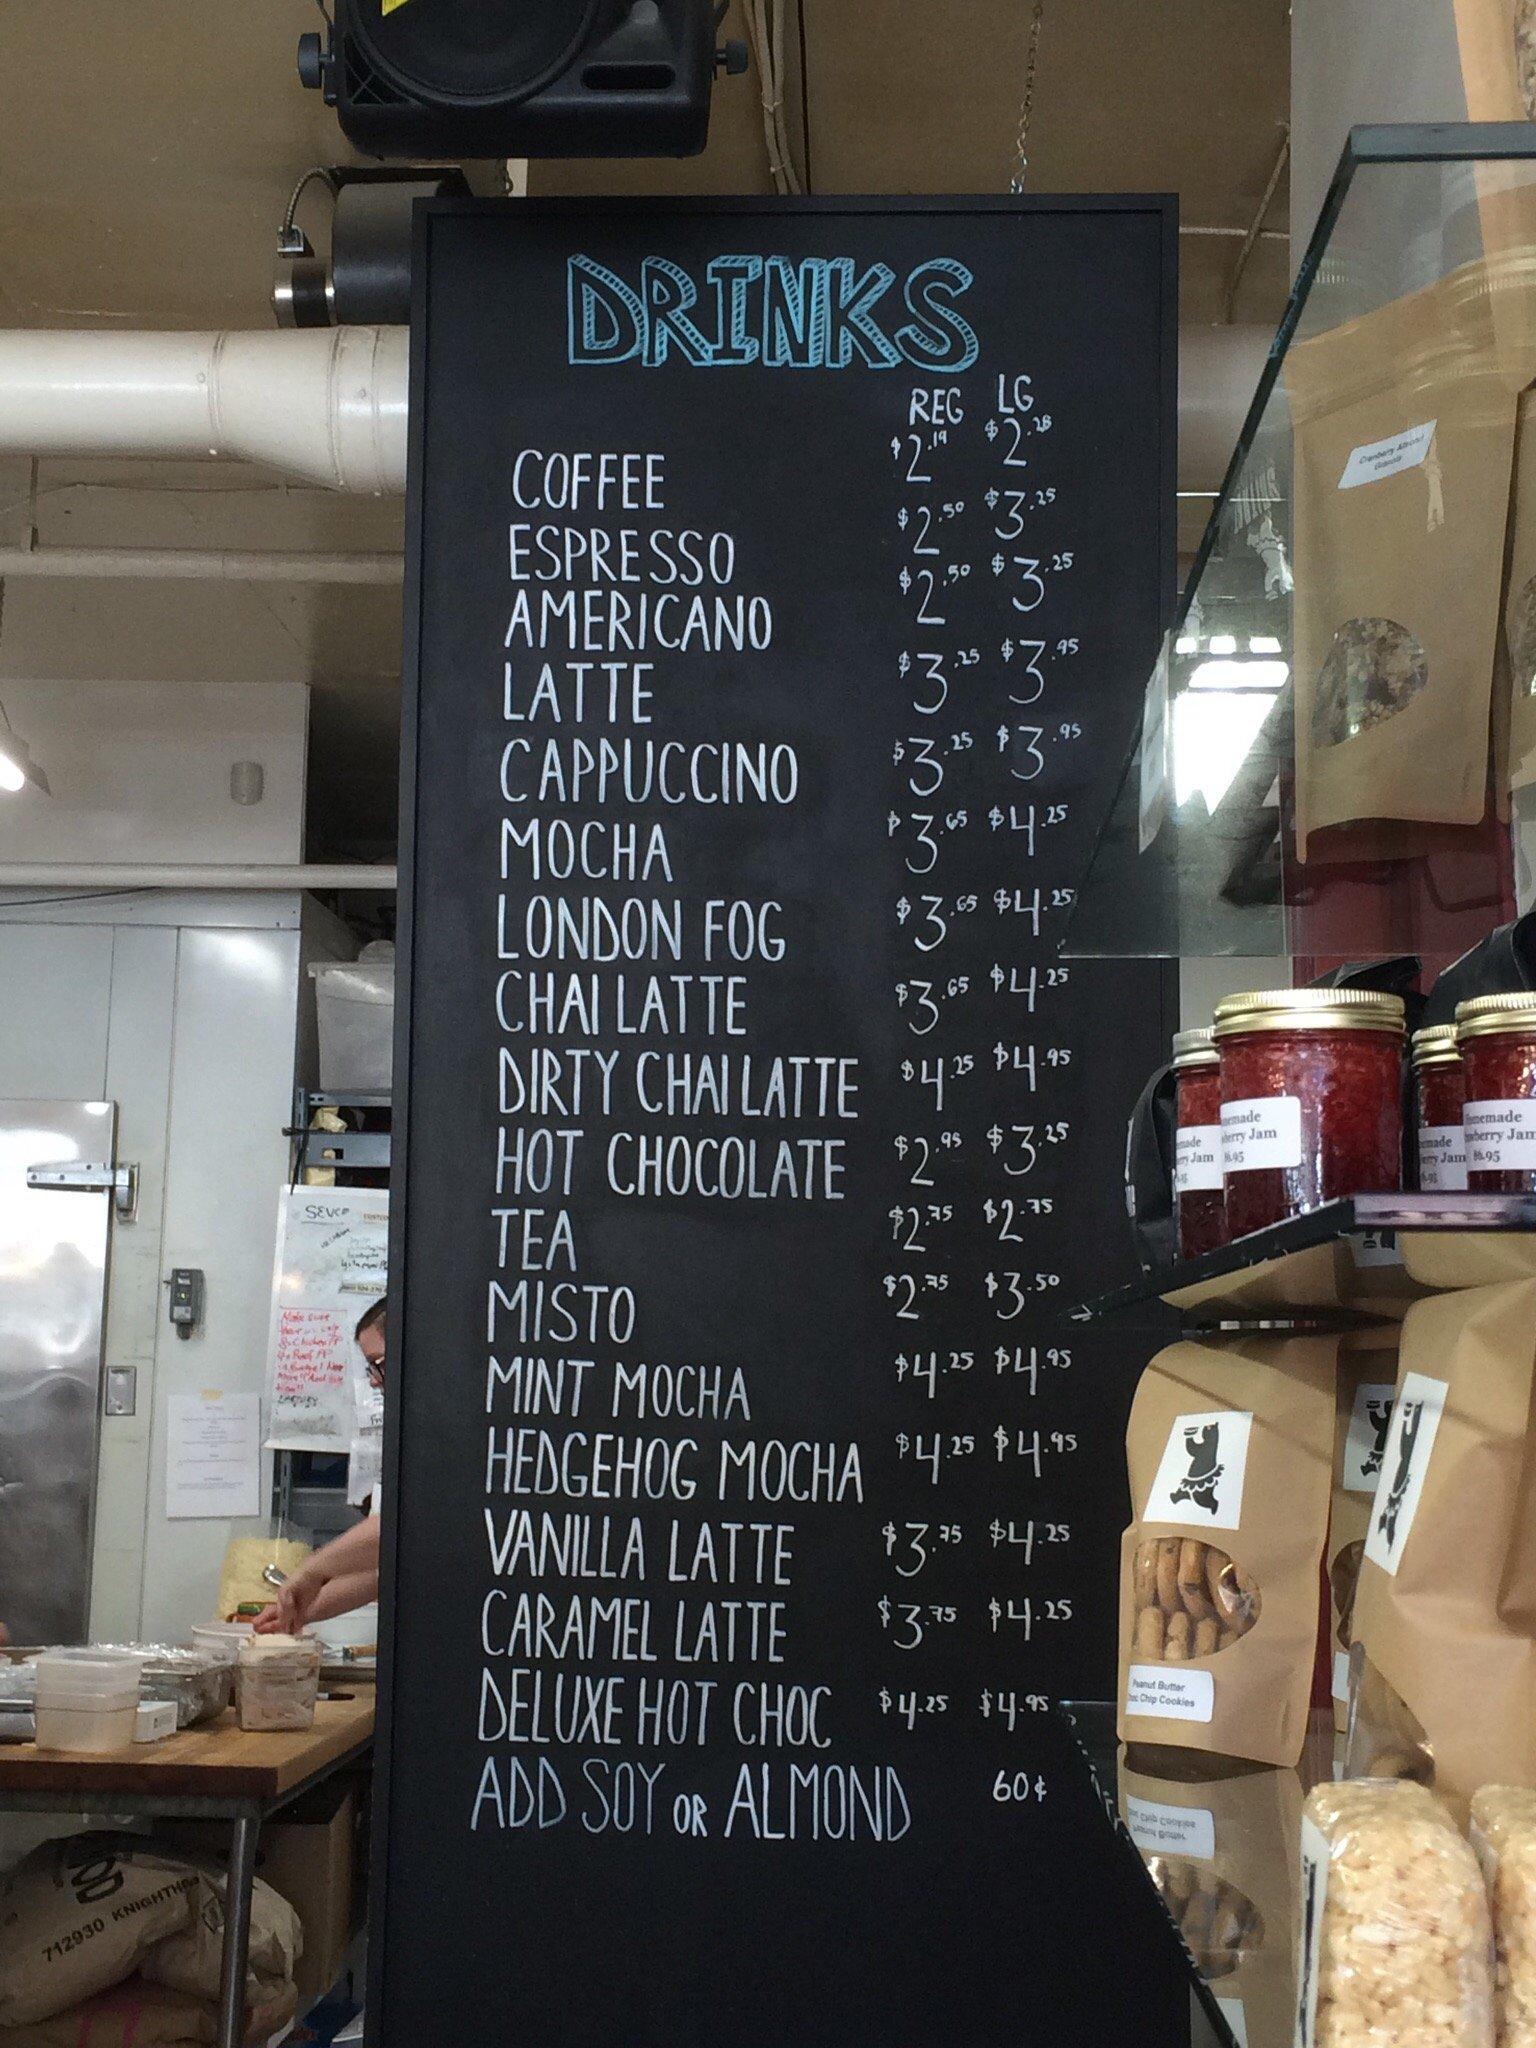 DRINKS
REG LG
COFFEE $2.19 $2.28
ESPRESSO $2.50 $3.25
AMERICANO $2.50 $3.25
LATTE $3.25 $3.95
CAPPUCCINO $3.25 $3.95
MOCHA $3.65 $4.25
LONDON FOG $3.65 $4.25
CHAI LATTE $3.65 $4.25
DIRTY CHAI LATTE $4.25 $4.95
HOT CHOCOLATE $2.95 $3.25
TEA $2.75 $2.75
MISTO $2.75 $3.50
MINT MOCHA $4.25 $4.95
HEDGEHOG MOCHA $4.25 $4.95
VANILLA LATTE $3.75 $4.25
CARAMEL LATTE $3.75 $4.25
DELUXE HOT CHOC $4.25 $4.95
ADD SOY OR ALMOND 60¢
Cranberry Almond
Granola
Jam
6.95
Jam
$6.95
Peanut Butter
Chip Cookies
Chip Cookies
Peanut Butter
Make sure
712930